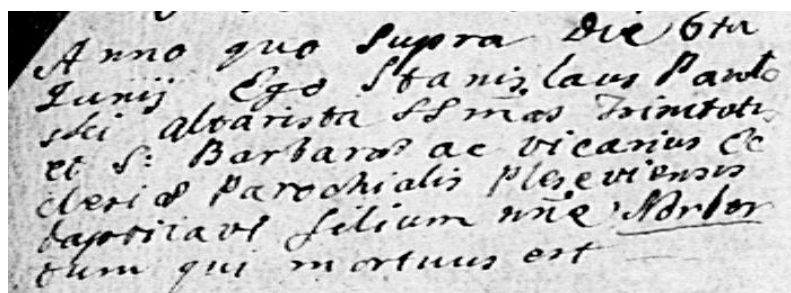 Anno quo Supra Die 6ta
Junij Ego Stanislaus Pawło
ski altarista SSmæ Trinitatis
et S: Barbaræ ac vicarius Ec
clesiæ Parochialis Pleseviensis
baptisavi filium nñe Norber
tum qui mortuus est